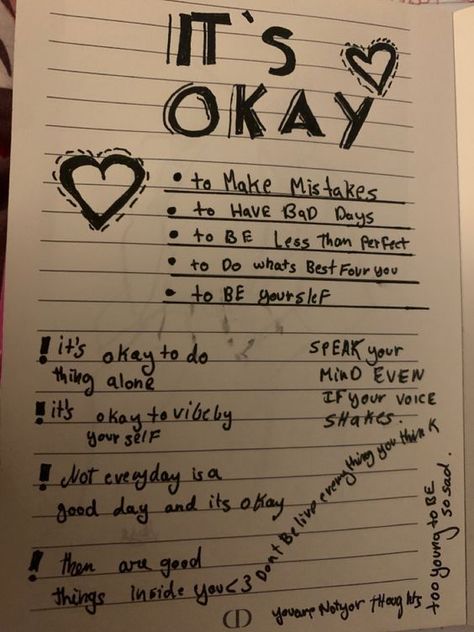 IT'S
OKAY
• to Make Mistakes
• to HAVE BaD Days
• to BE Less Than perfect
• to Do whats Best Four you
• to BE yourslef
! it's okay to do
thing alone
! it's okay to vibe by
your self
! Not everyday is a
good day and its okay
! then are good
things inside you<3
SPEAK your
MinD EVEN
IF your VOICE
SHAKES.
Don't Be live everything you think
too young to BE
so sad.
youare Notyor THougHts